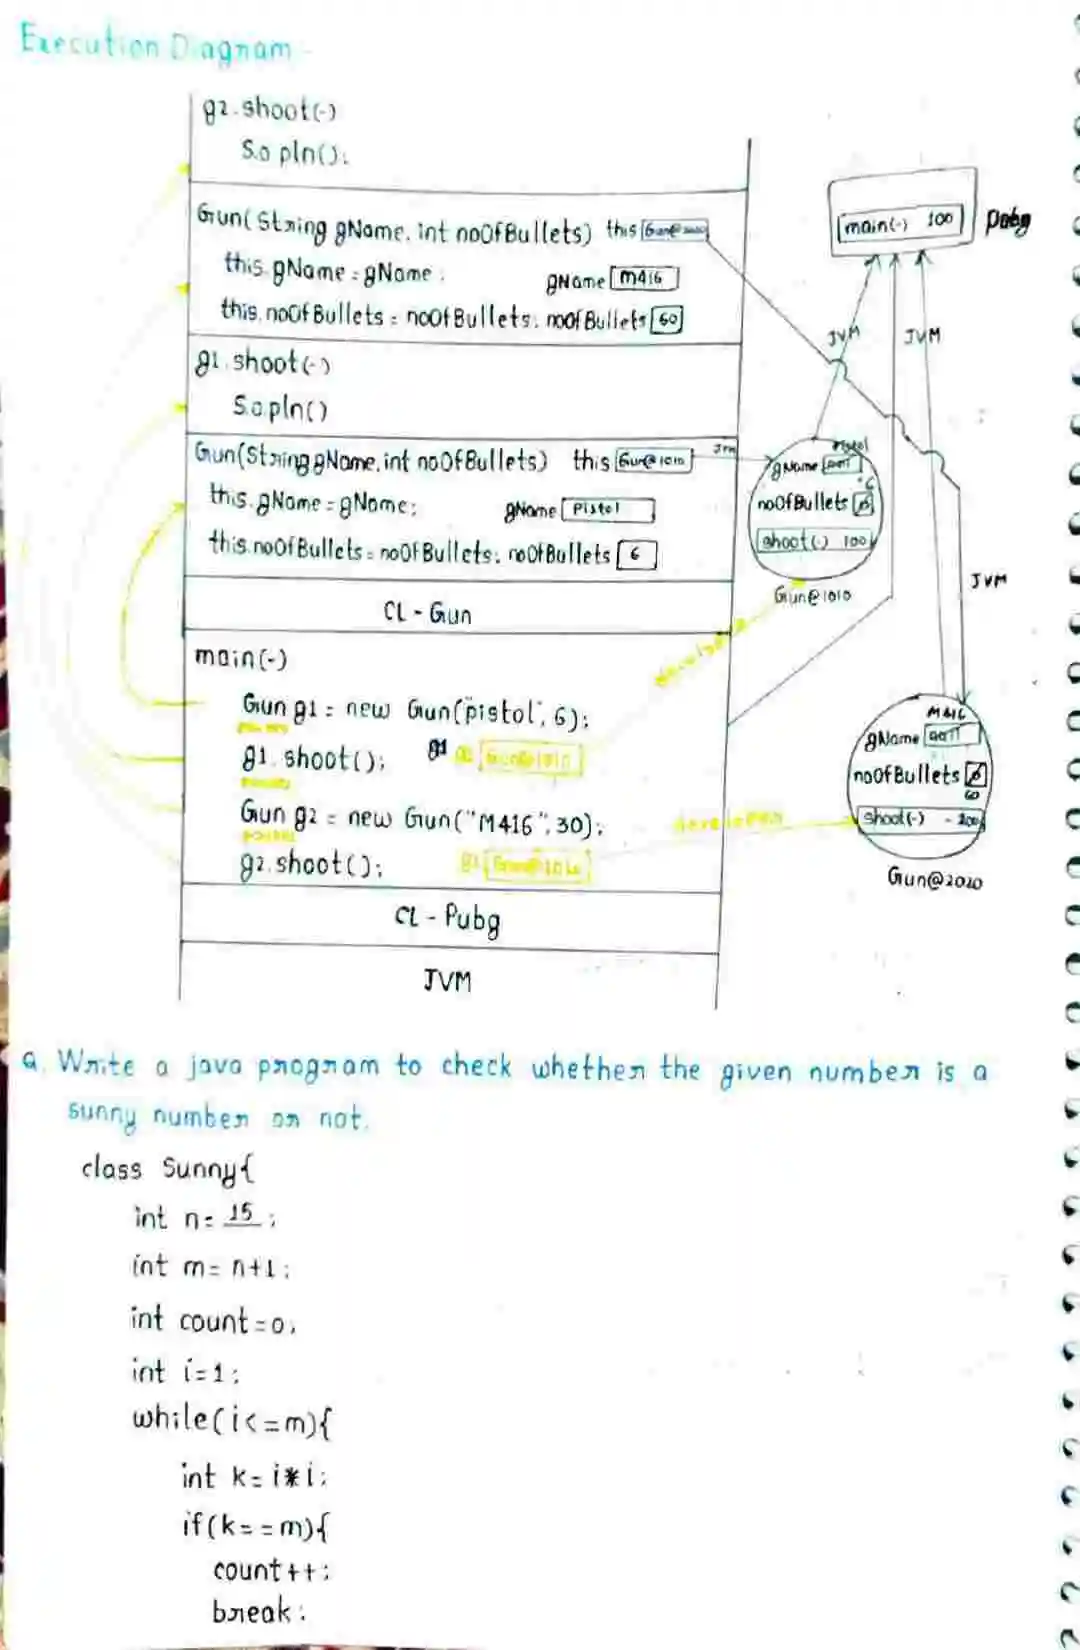 Execution Diagram -
g2.shoot(-)
S.o pln();
Gun(String gName, int noOfBullets) this
this.gName = gName; gName M416
this.noOfBullets = noOfBullets; noOfBullets 60
g1.shoot(-)
S.o.pln()
Gun(String gName, int noOfBullets) this Gun@1010
this.gName = gName; gName Pistol
this.noOfBullets = noOfBullets; noOfBullets 6
CL - Gun
main(-)
Gun g1 = new Gun("pistol", 6);
g1.shoot(); g1 Gun@1010
Gun g2 = new Gun("M416", 30);
g2.shoot(); g2
CL - Pubg
JVM
main(-) 100 Pubg
JVM JVM
JVM
Pistol
gName
6
noOfBullets
shoot(-) 100
Gun@1010
JVM
developer
M416
gName
noOfBullets
60
shoot(-) - 200
Gun@2020
developer
Q. Write a java program to check whether the given number is a
sunny number or not.
class Sunny{
int n= 15 ;
int m= n+1;
int count=0;
int i=1;
while(i<=m){
int k= i*i;
if(k==m){
count++;
break;